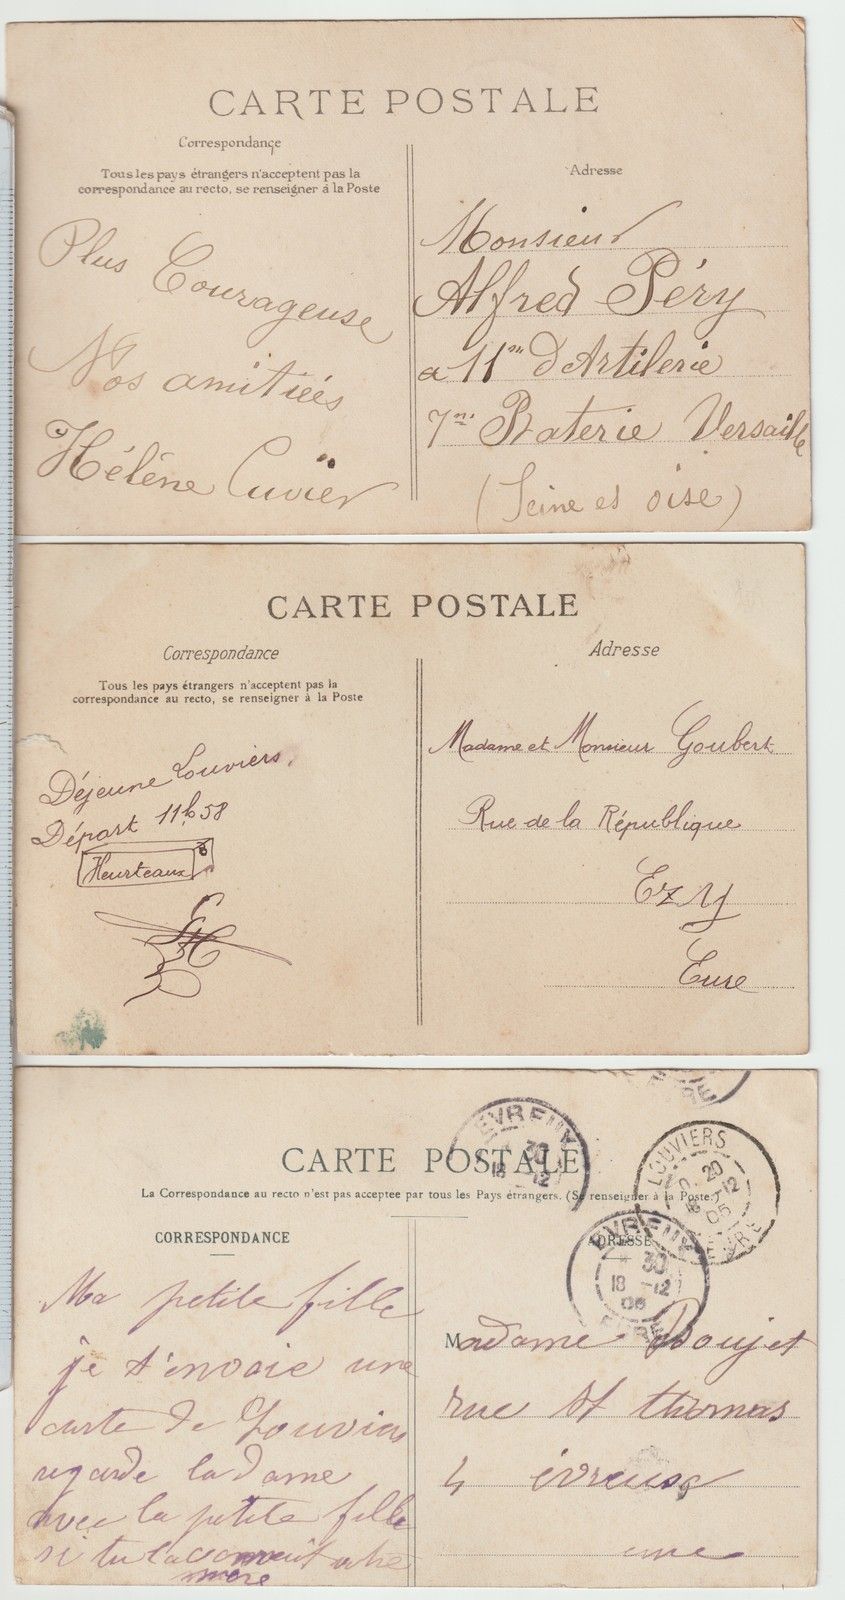 CARTE POSTALE
Correspondance
Tous les pays étrangers n'acceptent pas la
correspondance au recto, se renseigner à la Poste
Plus Courageuse
Nos amitiées
Hélène Cuvier
Adresse
Monsieur
Alfred Péry
a 11me d'Artilerie
7me Baterie Versaille
(Seine et oise)
CARTE POSTALE
Correspondance
Tous les pays étrangers n'acceptent pas la
correspondance au recto, se renseigner à la Poste
Déjeune Louviers.
Départ 11h58
Heurteaux
Adresse
Madame et Monsieur Goubert
Rue de la République
Ezy
Eure
EVREUX
30
18 12
LOUVIERS
20
18 12
05
EURE
CARTE POSTALE
La Correspondance au recto n'est pas acceptee par tous les Pays étrangers. (Se renseigner à la Poste.)
CORRESPONDANCE
Ma petite fille
je t'envoie une
carte de Louviers
regarde la dame
avec la petite fille
si tu la connait
mere
ADRESSE
EVREUX
30
18 12
05
EURE
Madame Doujet
rue St thomas
4 évreuse
eure